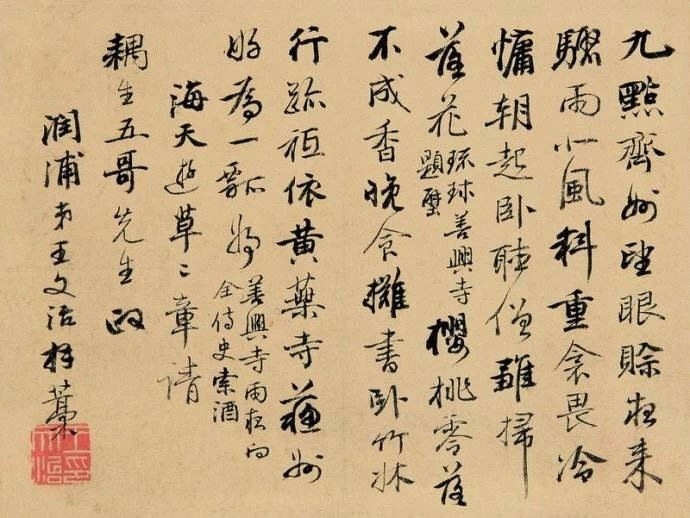 九點齊州望眼賒夜來
驟雨小風斜重衾畏冷
慵朝起臥聽僧雛掃
落花
琉球善興寺
題壁
櫻桃零落
不成香晚食攤書臥竹牀
行跡祗依黃蘗寺蘇州
好為一瓢
善興寺雨夜向
全侍史索酒
海天遊草二章請
耦生五哥先生政
潤浦弟王文治拜藁